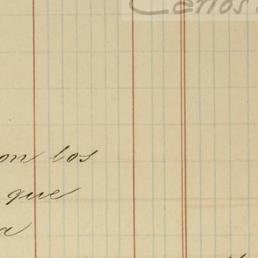 Carlos
on los
que
a